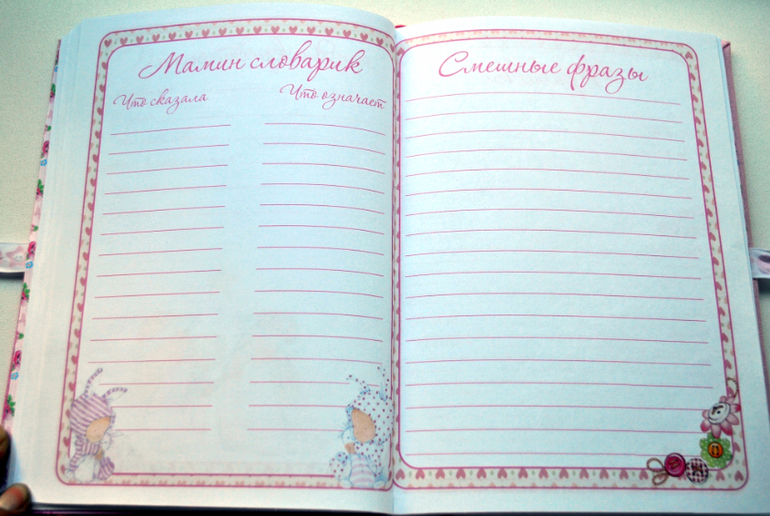 Мамин словарик
Что сказала Что означает
Смешные фразы